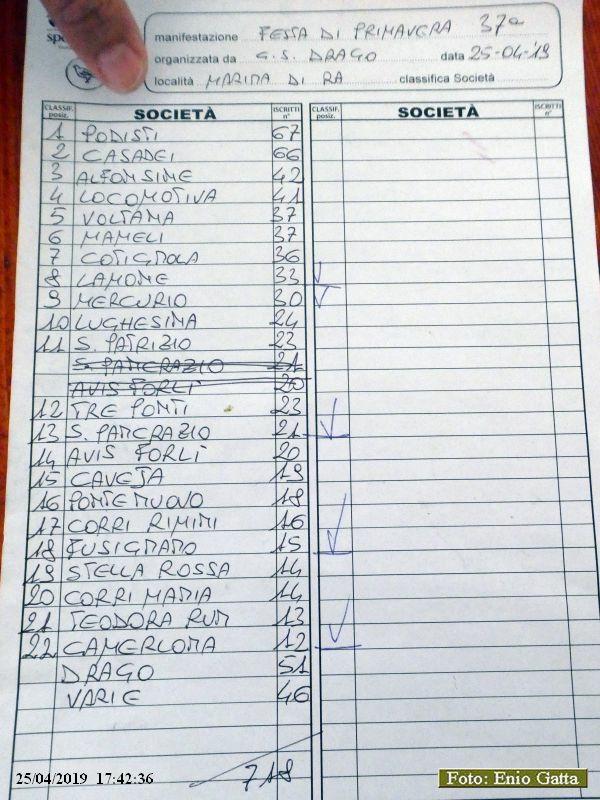 manifestazione FESTA DI PRIMAVERA 37ª
organizzata da G.S. DRAGO data 25-04-19
località MARINA DI RA classifica Società
CLASSIF. posiz. SOCIETÀ ISCRITTI n° CLASSIF. posiz. SOCIETÀ ISCRITTI n°
1 PODISTI 67
2 CASADEI 66
3 ALFONSINE 42
4 LOCOMOTIVA 41
5 VOLTANA 37
6 MAMELI 37
7 COTIGNOLA 36
8 LAMONE 33
9 MERCURIO 30
10 LUGHESINA 24
11 S. PATRIZIO 23
S. PANCRAZIO 21
AVIS FORLÌ 20
12 TRE PONTI 23
13 S. PANCRAZIO 21
14 AVIS FORLÌ 20
15 CAVEJA 19
16 PONTENUOVO 18
17 CORRI RIMINI 16
18 FUSIGNANO 15
19 STELLA ROSSA 14
20 CORRI MANIA 14
21 TEODORA RUN 13
22 CAMERLONA 12
DRAGO 51
VARIE 46
718
25/04/2019 17:42:36
Foto: Enio Gatta